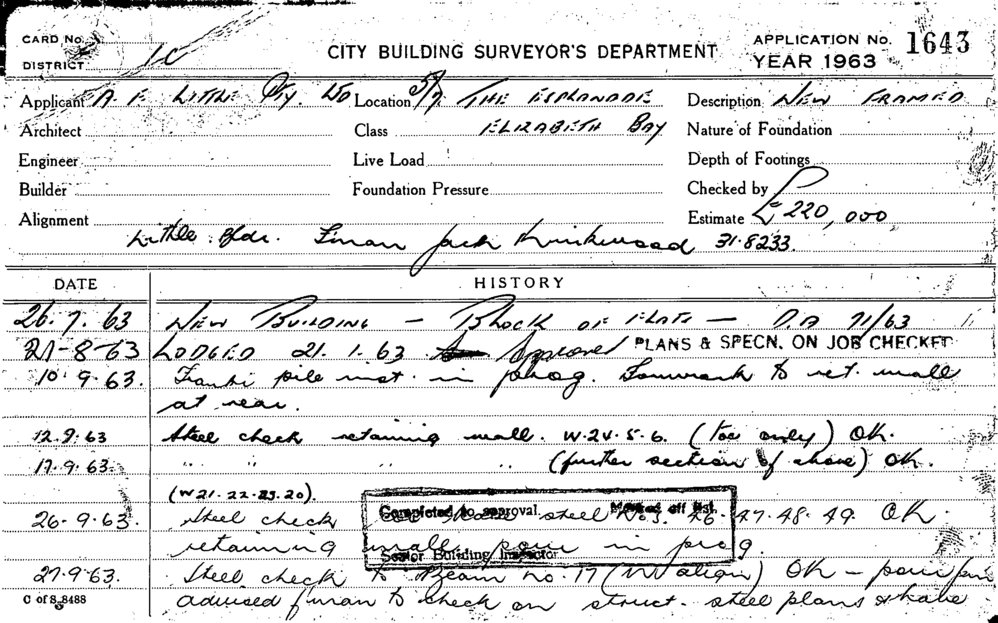 CARD No.
DISTRICT
CITY BUILDING SURVEYOR'S DEPARTMENT
APPLICATION No. 1643
YEAR 1963
Applicant A. F. LITTLE Pty. LTD Location 5/7 THE ESPLANADE Description NEW FRAMED
Architect Class ELIZABETH BAY Nature of Foundation
Engineer Live Load Depth of Footings
Builder Foundation Pressure Checked by
Alignment Estimate £220,000
Little Bldr. Jack Kirkwood 31.8233.
DATE HISTORY
26.7.63 NEW BUILDING - BLOCK OF FLATS - D.A 71/63
21-8-63 LODGED 21.1.63 Approved PLANS & SPECN. ON JOB CHECKED
10.9.63. Franki pile inst. in prog. Formwork to ret. walls
at rear.
12.9.63 Steel check retaining wall. W.24.5.6. (toe only) OK.
17.9.63. " " " " (further section of above) OK.
(W21.22.23.20).
26.9.63. Steel check steel Nos. 46.47.48.49. OK
Completed to approval. Marked off list.
retaining walls pour in prog.
Senior Building Inspector
27.9.63. Steel check to Beam no.17 OK - pour
C of S 8488
advised to check on struct. steel plans & have